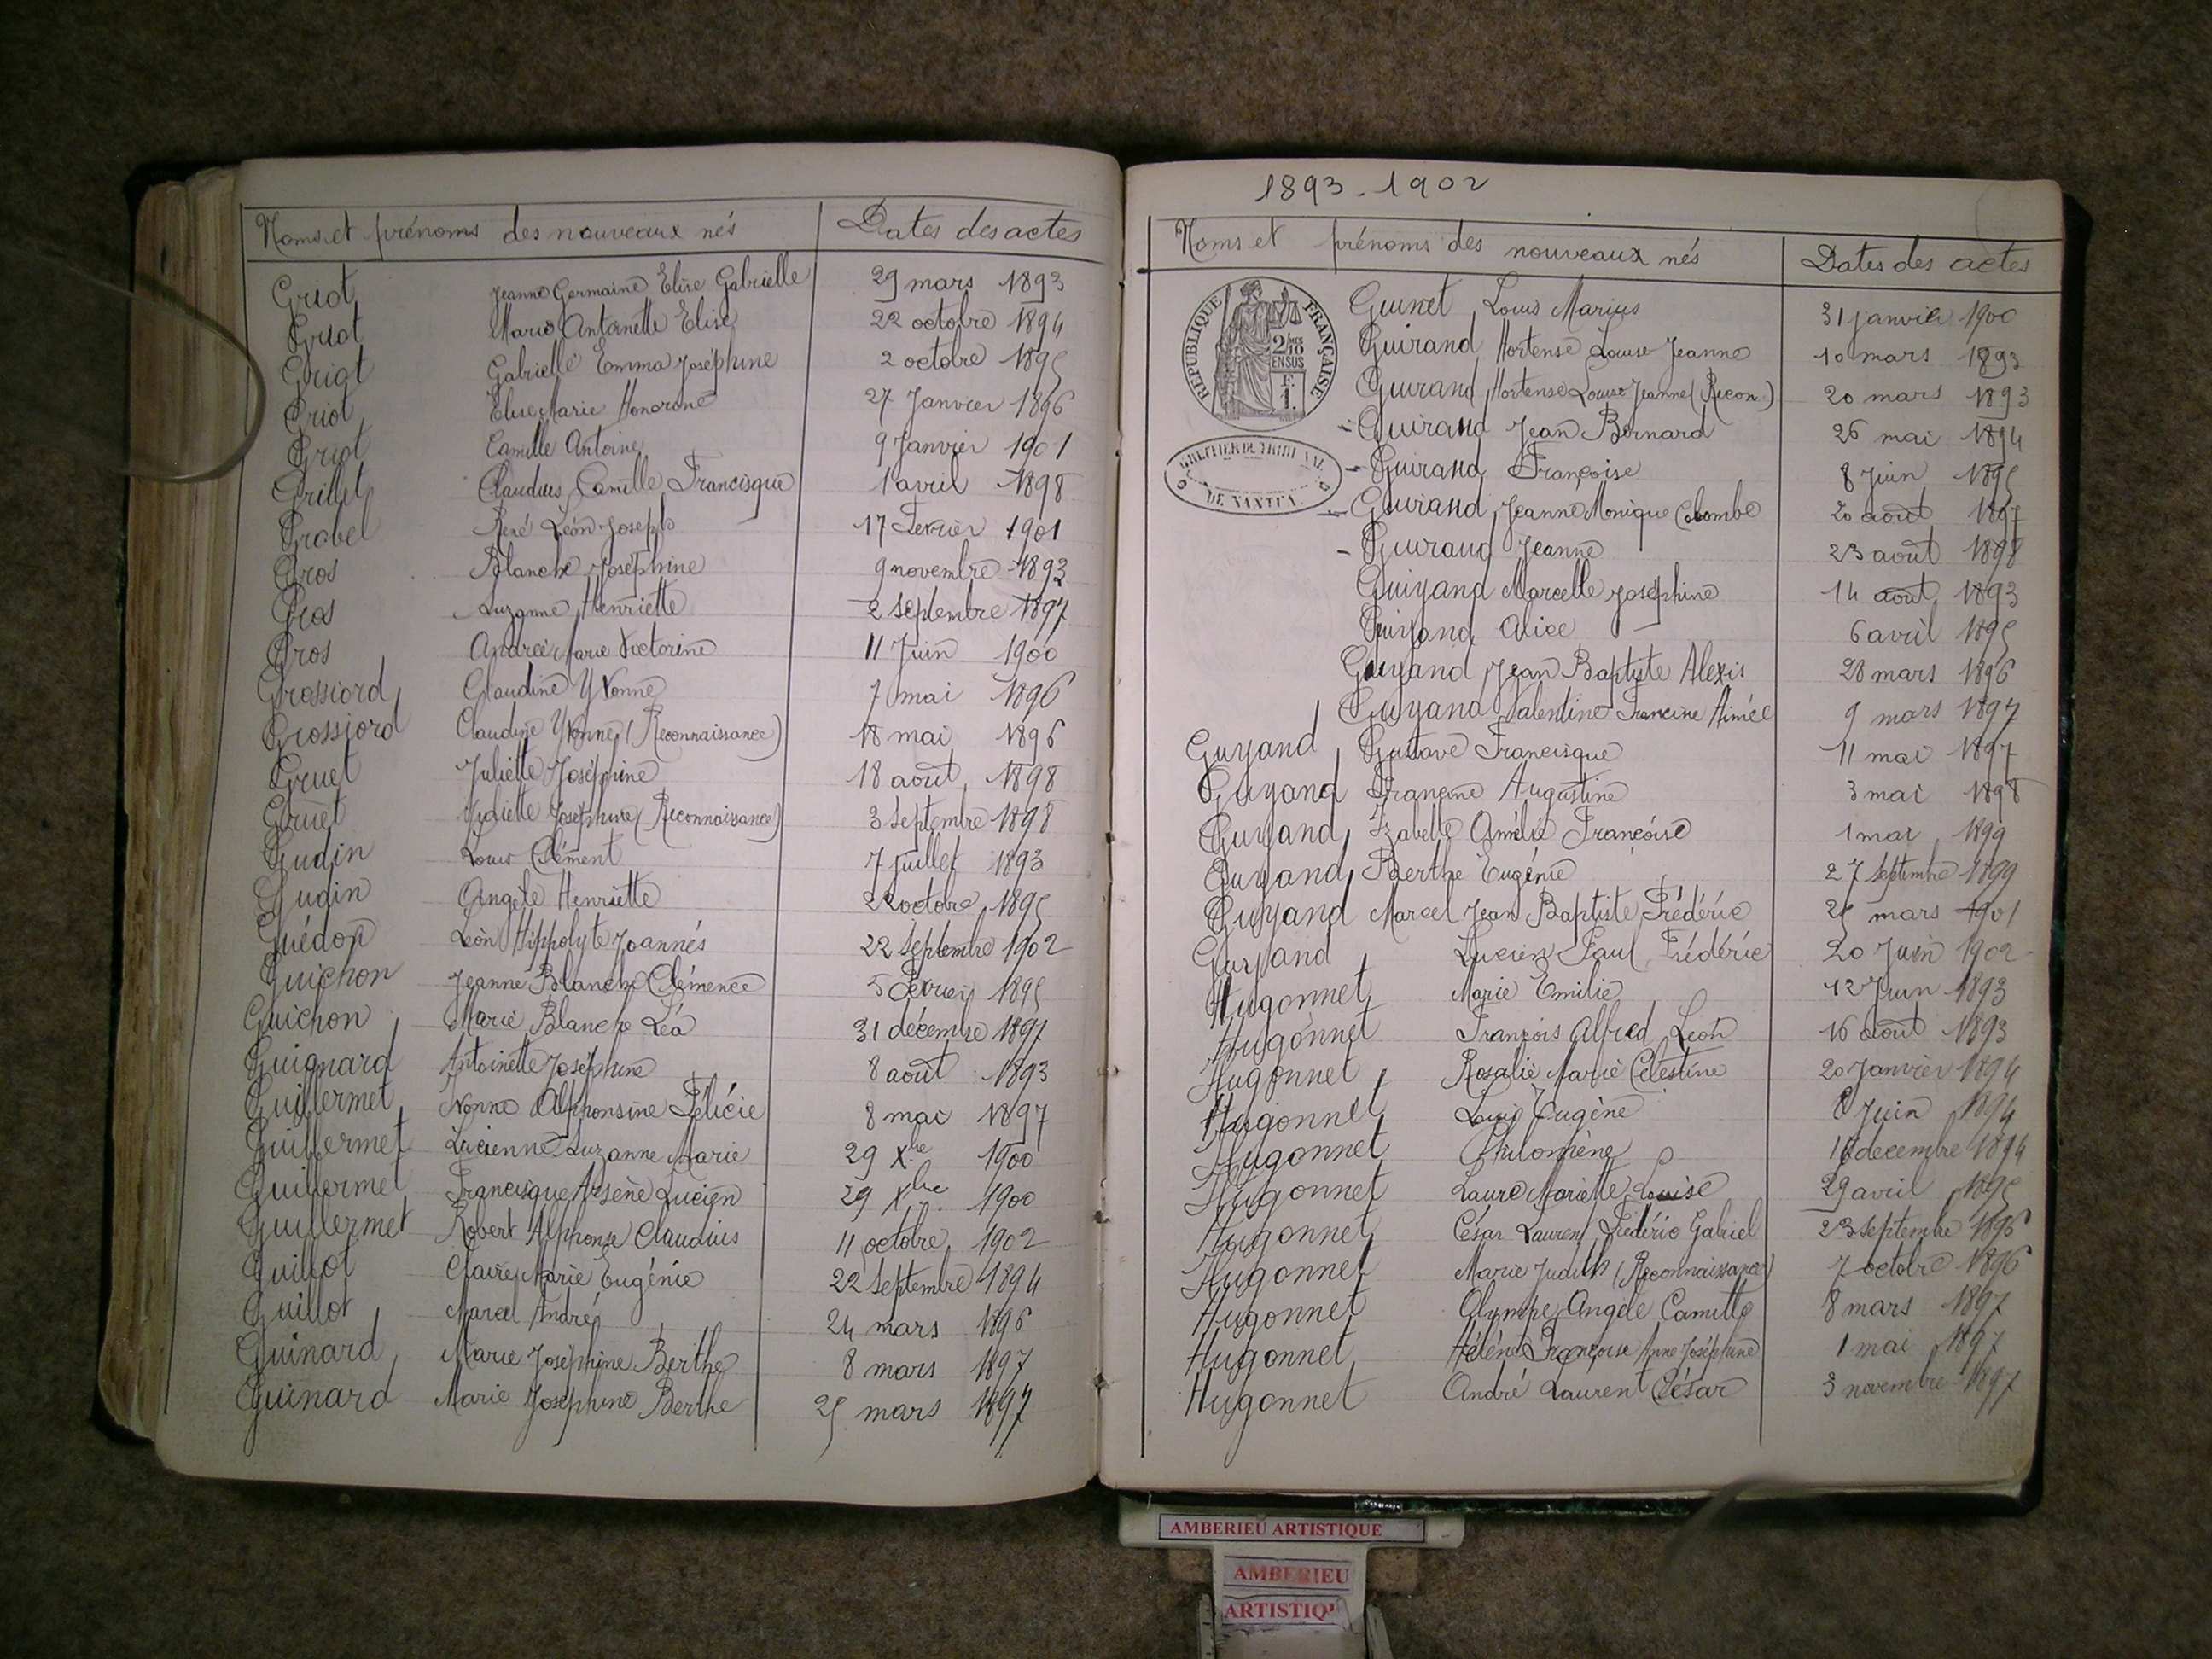 Noms et prénoms des nouveaux nés Dates des actes
Griot Jeanne Germaine Elise Gabrielle 29 mars 1893
Griot Marie Antoinette Elise 22 octobre 1894
Griot Gabrielle Emma Joséphine 2 octobre 1895
Griot Elise Marie Honorine 27 Janvier 1896
Griot Camille Antoine 9 Janvier 1901
Grillet Claudius Camille Francisque 1 avril 1898
Grobel René Léon Joseph 17 Fevrier 1901
Gros Blanche Joséphine 9 novembre 1893
Gros Suzanne Henriette 2 Septembre 1897
Gros Andrée Marie Victorine 11 Juin 1900
Grossiord Claudine Yvonne 7 mai 1896
Grossiord Claudine Yvonne (Reconnaissance) 18 mai 1896
Gruet Juliette Joséphine 18 août 1898
Gruet Juliette Joséphine (Reconnaissance) 3 Septembre 1898
Gudin Louis Clément 7 Juillet 1893
Gudin Angèle Henriette 22 octobre 1895
Guédon Léon Hippolyte Joannés 22 Septembre 1902
Guichon Jeanne Blanche Clémence 5 Fevrier 1895
Guichon Marie Blanche Léa 31 décembre 1897
Guignard Antoinette Joséphine 8 août 1893
Guillermet Yvonne Alphonsine Félicie 8 mai 1897
Guillermet Lucienne Suzanne Marie 29 Xbre 1900
Guillermet Francisque Arsène Lucien 29 Xbre 1900
Guillermet Robert Alphonse Claudius 11 octobre 1902
Guillot Claire Marie Eugénie 22 Septembre 1894
Guillot Marcel André 24 mars 1896
Guinard Marie Joséphine Berthe 8 mars 1897
Guinard Marie Joséphine Berthe 25 mars 1897
1893-1902
Noms et prénoms des nouveaux nés Dates des actes
RÉPUBLIQUE FRANÇAISE
2/10 EN SUS
F. 1.
GREFFIER DU TRIBUNAL
DE NANTUA
Guinet Louis Marius 31 janvier 1900
Guirand Hortense Louise Jeanne 10 mars 1893
Guirand Hortense Louise Jeanne (Recon.) 20 mars 1893
- Guirand Jean Bernard 26 mai 1894
- Guirand Françoise 8 Juin 1895
- Guirand Jeanne Monique Colombe 20 août 1897
- Guiraud Jeanne 23 août 1898
Guiyand Marcelle Joséphine 14 août 1893
Guiyand Alice 6 avril 1895
Guyand Jean Baptiste Alexis 28 mars 1896
Guyand Valentine Francine Aimée 9 mars 1897
Guyand Gustave Francisque 11 mai 1897
Guyand Francine Augustine 3 mai 1898
Guyand Izabelle Amélie Françoise 1 mai 1899
Guyand Berthe Eugénie 27 Septembre 1899
Guyand Marcel Jean Baptiste Frédéric 25 mars 1901
Guyand Lucien Paul Frédéric 20 Juin 1902
Hugonnet Marie Emilie 12 Juin 1893
Hugonnet François Alfred Léon 16 août 1893
Hugonnet Rosalie Marie Célestine 20 Janvier 1894
Hugonnet Louis Eugène 8 Juin 1894
Hugonnet Philomène décembre 1894
Hugonnet Laure Mariette Louise 29 avril 1895
Hugonnet César Laurent Frédéric Gabriel 23 septembre 1896
Hugonnet Marie Judith (Reconnaissance) 7 octobre 1896
Hugonnet Olympe Angèle Camille 8 mars 1897
Hugonnet Hélène Françoise Anne Joséphine 1 mai 1897
Hugonnet André Laurent César 3 novembre 1897
AMBERIEU ARTISTIQUE
AMBERIEU
ARTISTIQU